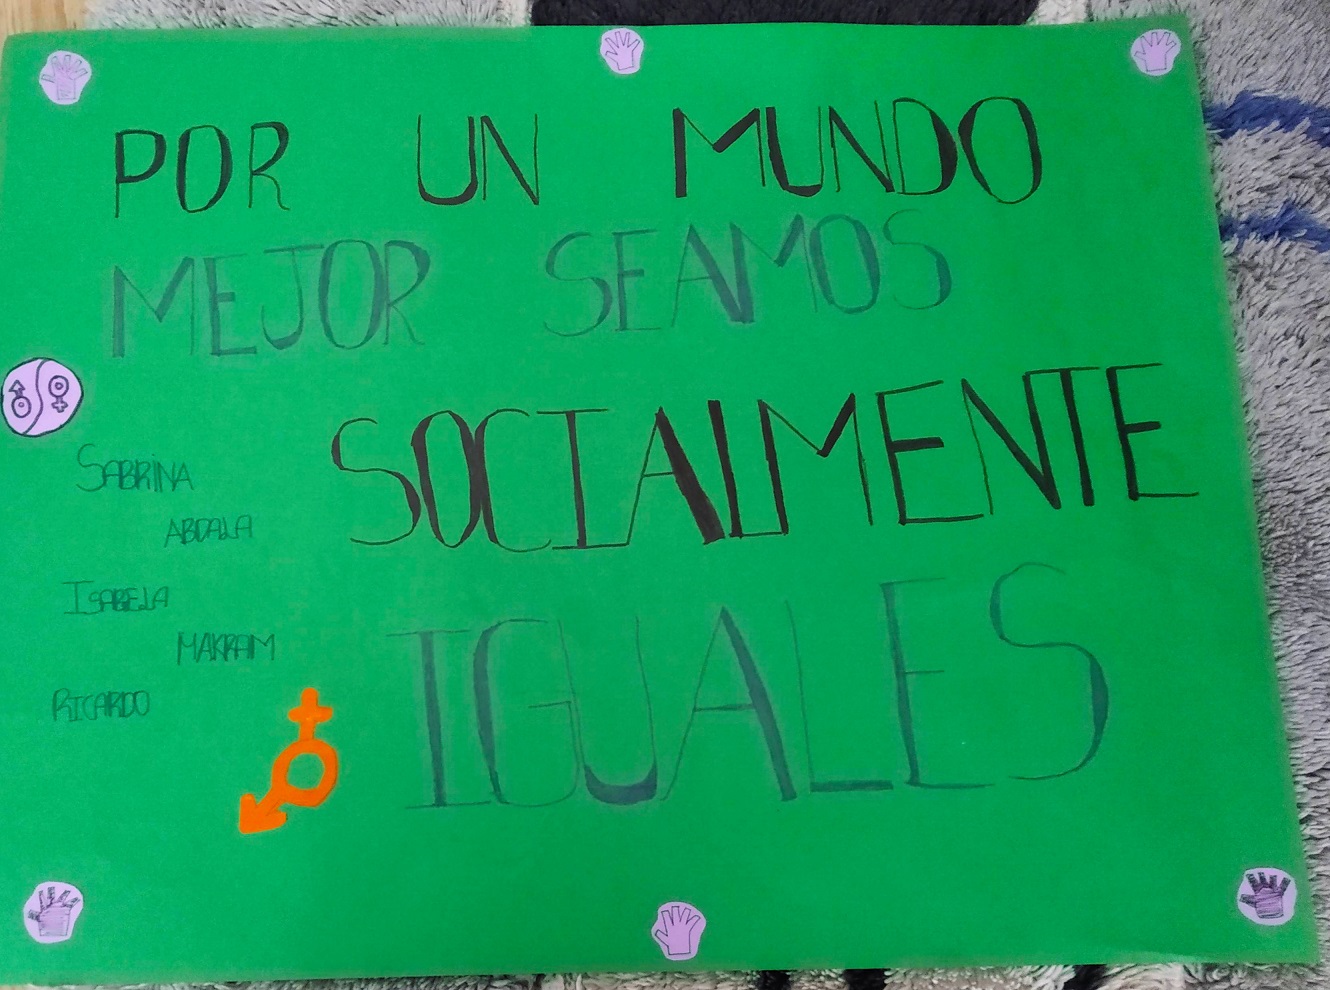 POR UN MUNDO
MEJOR SEAMOS
SOCIALMENTE
IGUALES
SABRINA
ABDALA
ISABELA
MAKRAM
RICARDO